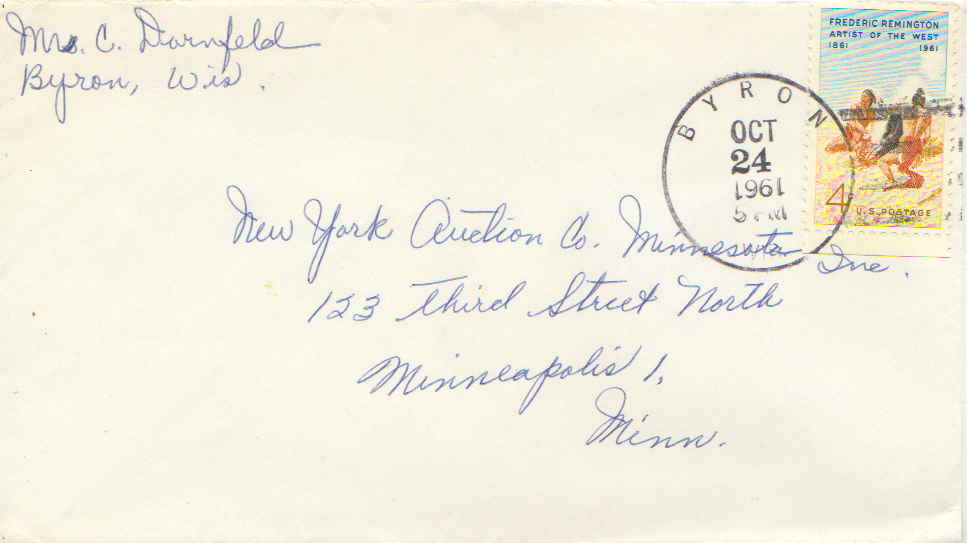 Mrs. C. Dornfeld
Byron, Wis.
FREDERIC REMINGTON
ARTIST OF THE WEST
1861 1961
4¢ U.S. POSTAGE
BYRON
OCT
24
1961
5 PM
New York Auction Co. Minnesota Inc.
123 Third Street North
Minneapolis 1,
Minn.